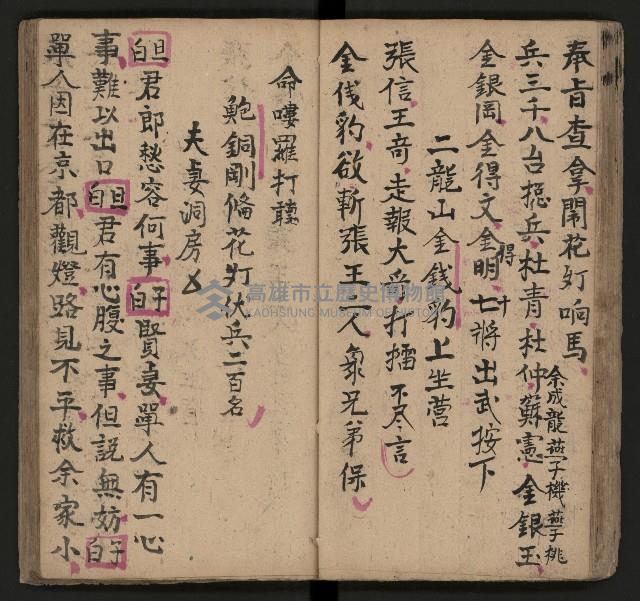 奉旨查拿鬧花灯响馬
余成龍燕子機燕子桃
兵三千八台捴兵杜青杜仲蘇憲金銀玉
金銀岡金得文金得明七將十出武按下
二龍山金錢豹上坐营
張信王奇走報大爺打擂不尽言
金伐豹欲斬張王人衆兄弟保
命嘍羅打鼓
鮑銅剛俻花灯伏兵二百名
夫妻洞房乂
旦白君郎愁容何事生白賢妻單人有一心
事難以出口旦白君有心腹之事但説無妨生白
單人因在京都觀燈路見不平救余家小
高雄市立歷史博物館
KAOHSIUNG MUSEUM OF HISTORY